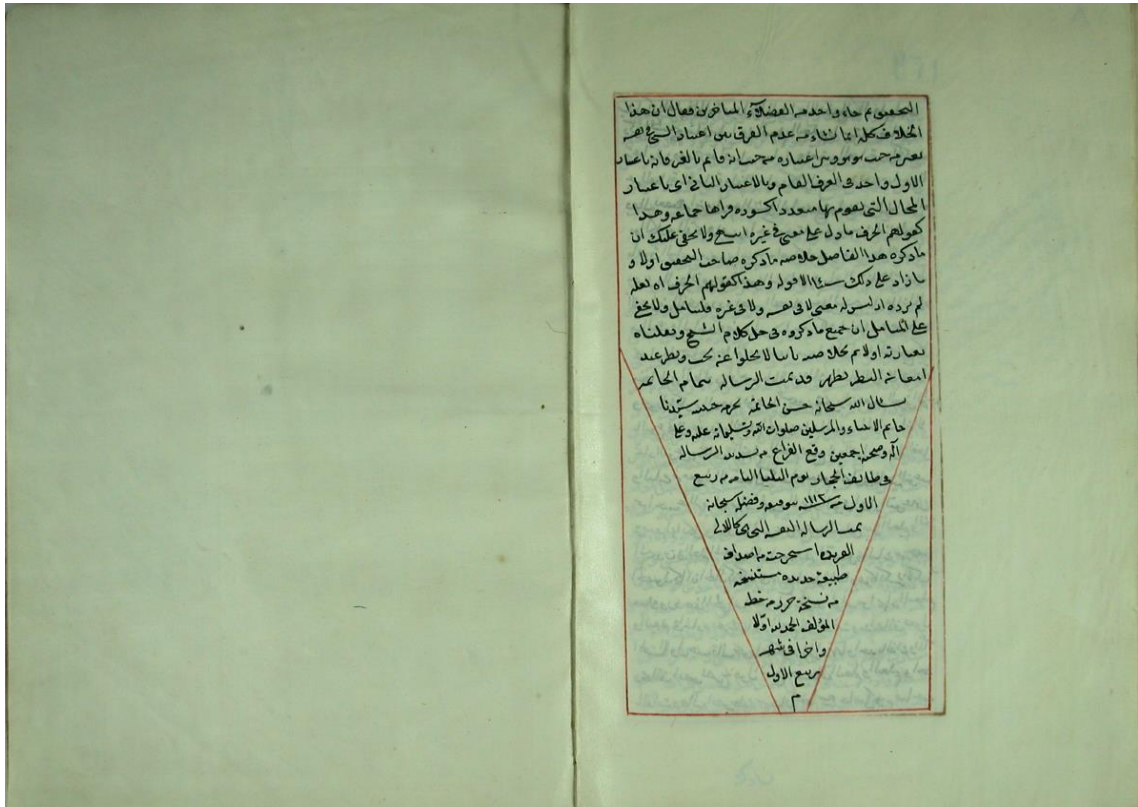 التحقيق ثم جاء واحد من الفضلاء المتأخرين فقال ان هذا
الخلاف كله انما نشاء من عدم الفرق بين اعتبار الشئ في نفسه
من حيث هو هو وبين اعتباره من حيث انه قائم بالغير فانه باعتبار
الاول واحد في العرف العام وبالاعتبار الثاني اي باعتبار
المحال التي يقوم بها متعدد اكسوده فراها جماعة وهذا
كقولهم الحرف ما دل على معنى في غيره انتهى ولا يخفى عليك ان
ما ذكره هذا الفاضل خلاصة ما ذكره صاحب التحقيق اولا و
ما زاد على ذلك شيئا الا قوله وهذا كقولهم الحرف اه
لم يرده اذ ليس له معنى لا في نفسه ولا في غيره فليتأمل ولا يخفى
على المتأمل ان جميع ما ذكروه في حل كلام الشيخ ونقلناه
بعبارته اولا ثم بخلاصته ثانيا لا يخلوا عنه بحث ونظر عند
امعان النظر يظهر قد تمت الرسالة بتمام الخاتمة
نسال الله سبحانه حسن الخاتمة بحرمة حبيبه سيدنا
خاتم الانبياء والمرسلين صلوات الله وتسليماته عليه وعلى
آله وصحبه اجمعين وقع الفراغ من تسويد الرسالة
في طائف الحجاز يوم الثلثا الثامن من ربيع
الاول من سنه ١١١٣ بتوفيقه وفضله سبحانه
تمت الرسالة النفيسة التي هي كاللالي
الفريدة استخرجت من اصداف
طبيعة جديدة مستنسخة
من نسخة حرر من خط
المؤلف الحمد لله اولا
واخرا في شهر
ربيع الاول
م